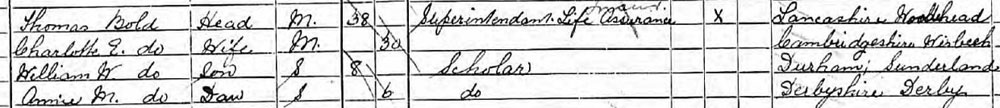 Thomas Bold Head M. 38 Superintendant. Life Assurance X Lancashire Woodshead
Charlotte E. do Wife M. 30 Cambridgeshire Wisbech
William W. do Son S 8 Scholar Durham; Sunderland
Annie M. do Daw S 6 do Derbyshire Derby